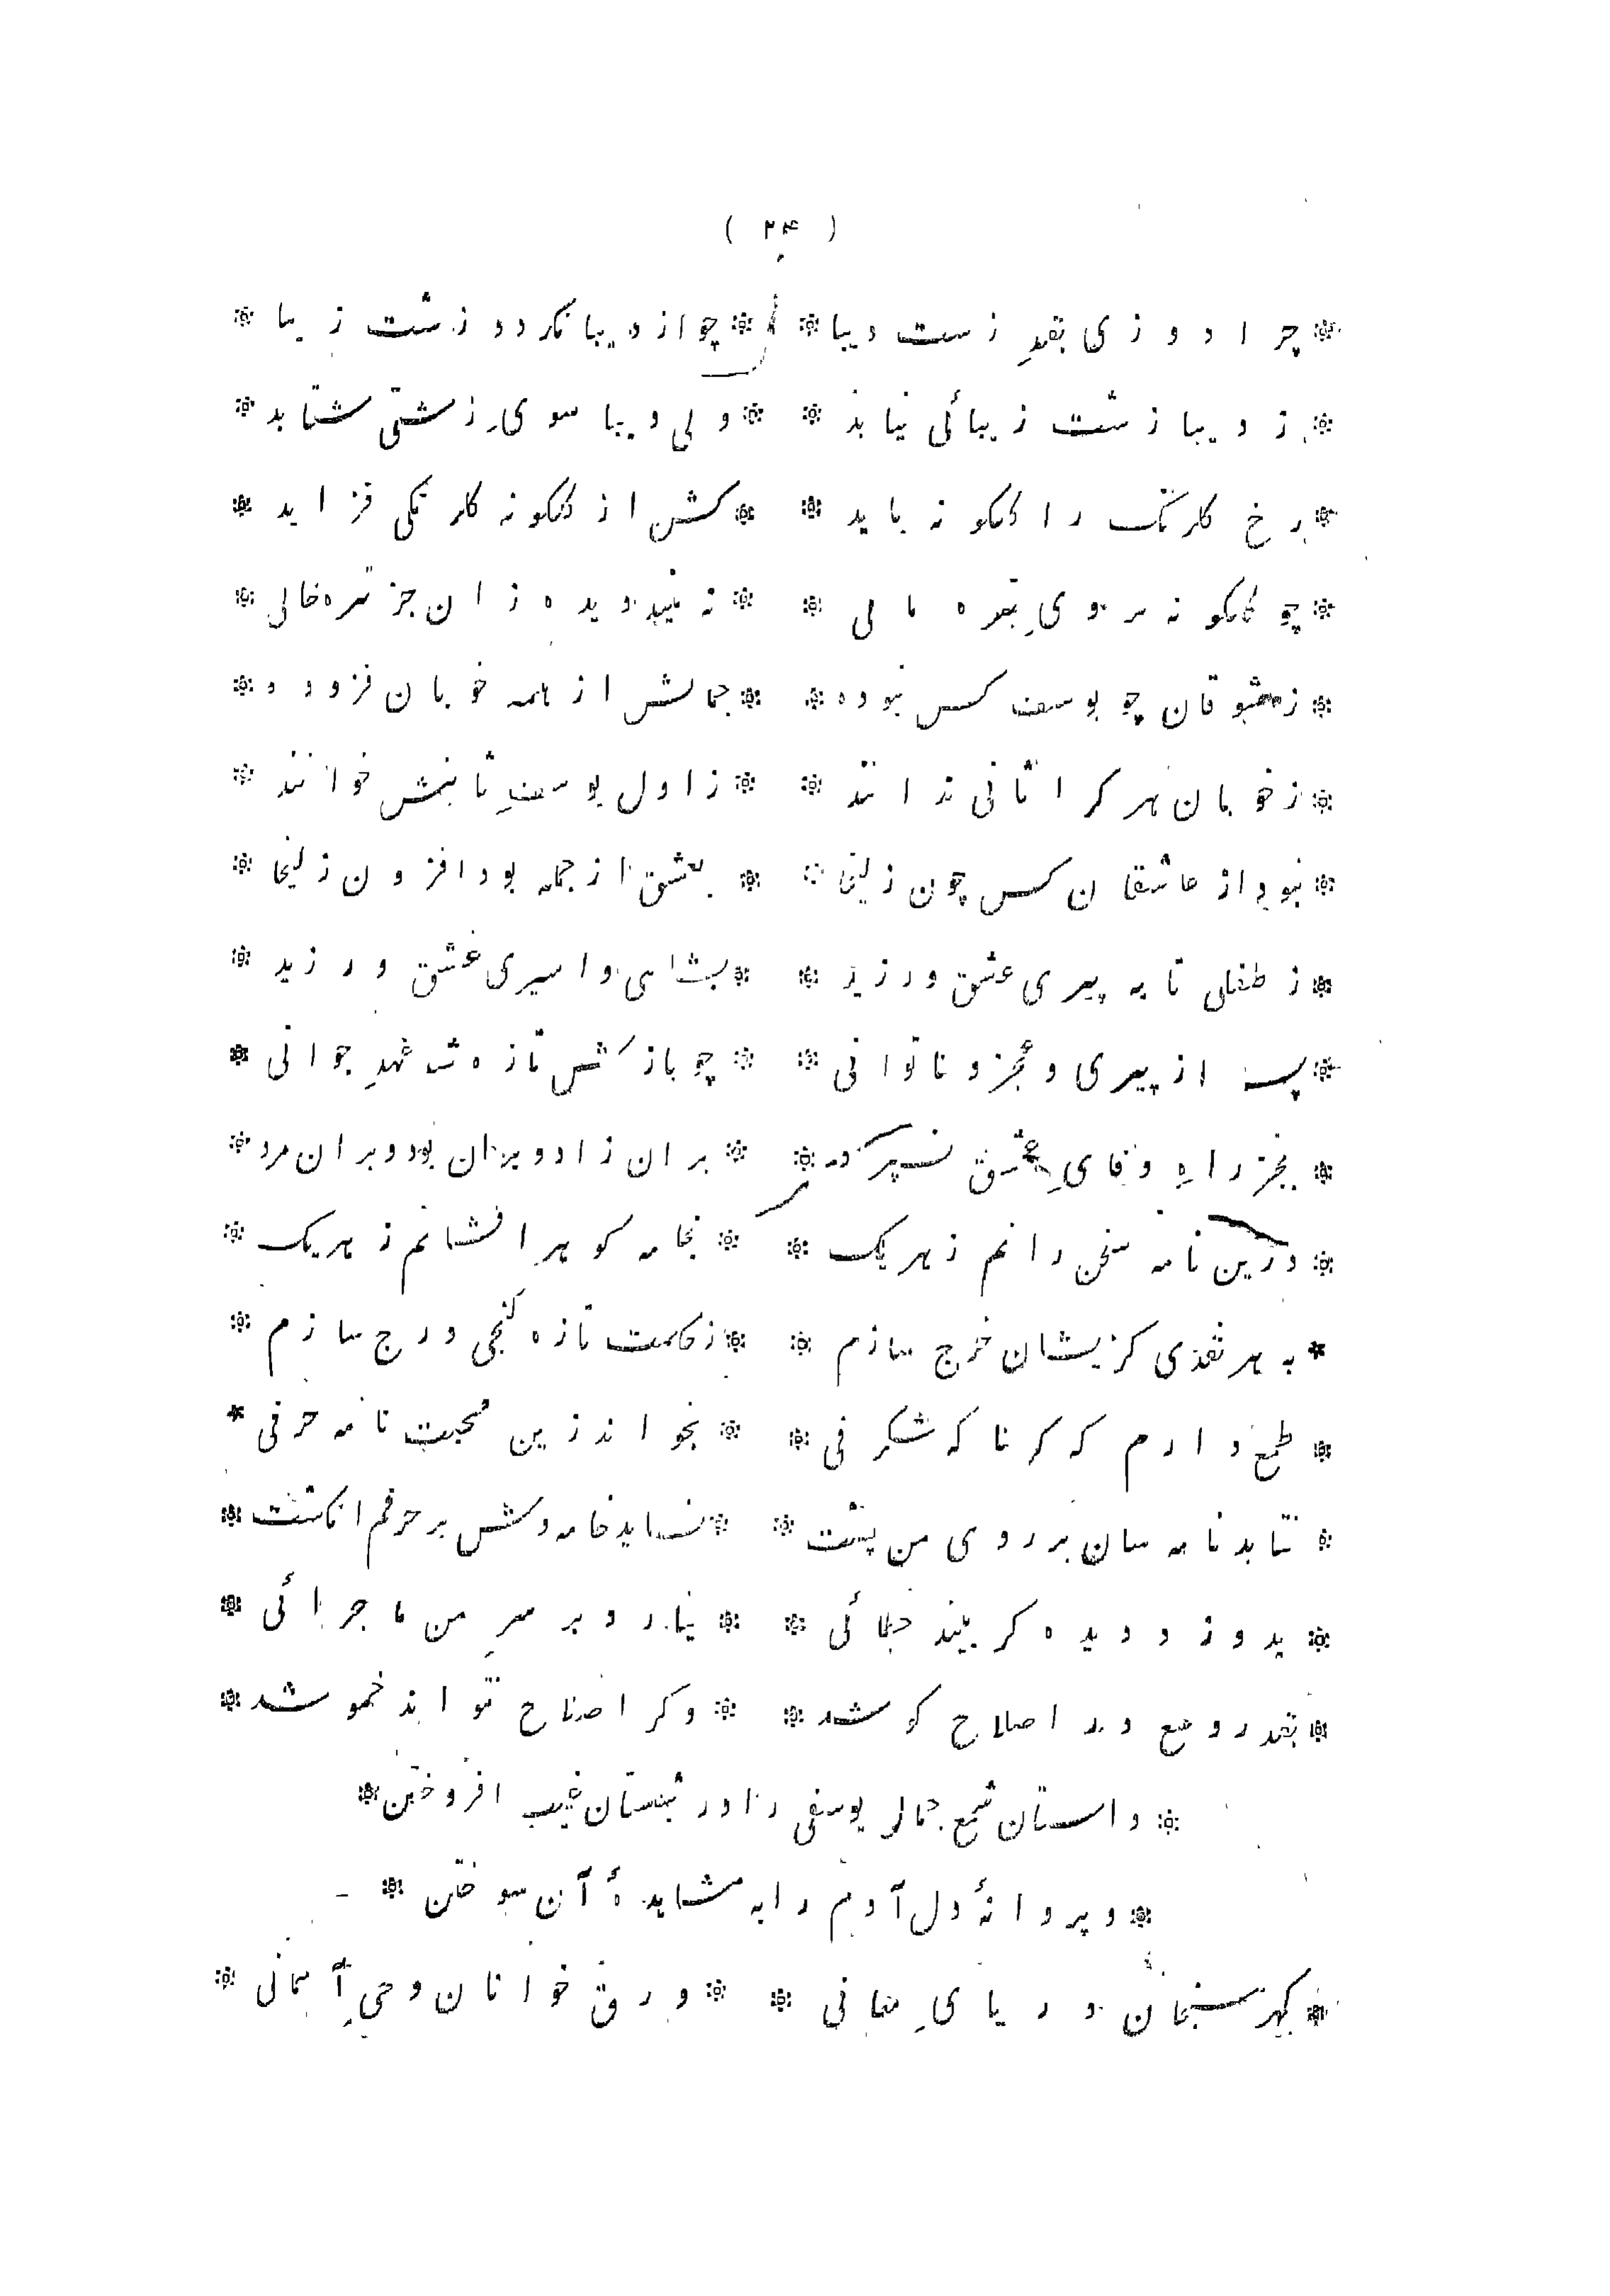 ( ۲۴ )
* چرا دوزی بقدِ زشت دیبا * * چو از دیبا نکردد زشت زیبا *
* ز دیبا زشت زیبائی نیابد * * ولی دیبا سویِ زشتی شتابد *
* رخ کلرنک را کلکونه باید * * کش از کلکونه کلرنکی فزاید *
* چو کلکونه برویِ تیره مالی * * نه بیند دیده زان جز تیره خالی *
* ز معشوقان چو یوسف کس نبوده * * جمالش از همه خوبان فزوده *
* ز خوبان هر کرا ثانی ندانند * * ز اول یوسفِ ثانیش خوانند *
* نبود از عاشقان کس چون زلیخا * * بعشق از جمله بود افزون زلیخا *
* ز طفلی تا به پیری عشق ورزید * * بشاهی و اسیری عشق ورزید *
* پس از پیری و عجز و ناتوانی * * چو بازش تازه شد عهدِ جوانی *
* بجز راهِ وفایِ عشق نسپرد * * بران زاد و بران بود و بران مرد *
* درین نامه سخن رانم ز هریک * * بخامه کوهر افشانم ز هریک *
* به هر نقدی کزیشان خرج سازم * * ز حکمت تازه کنجی درج سازم *
* طمع دارم که کر ناکه شکرفی * * بخواند زین محبت نامه حرفی *
* نتابد نامه سان بر روی من پشت * * نساید خامه وش بر حرفم انکشت *
* بدوزد دیده کر بیند خطائی * * نیارد بر سرِ من ماجرائی *
* بقدر وسع در اصلاح کوشد * * وکر اصلاح نتواند خموشد *
* داستان شمع جمال یوسفی را در شبستان غیب افروختن *
* و پروانۀ دل آدم را به مشاهدۀ آن سوختن *
* کهر سنجان دریایِ معانی * * ورق خوانان وحیِ آسمانی *